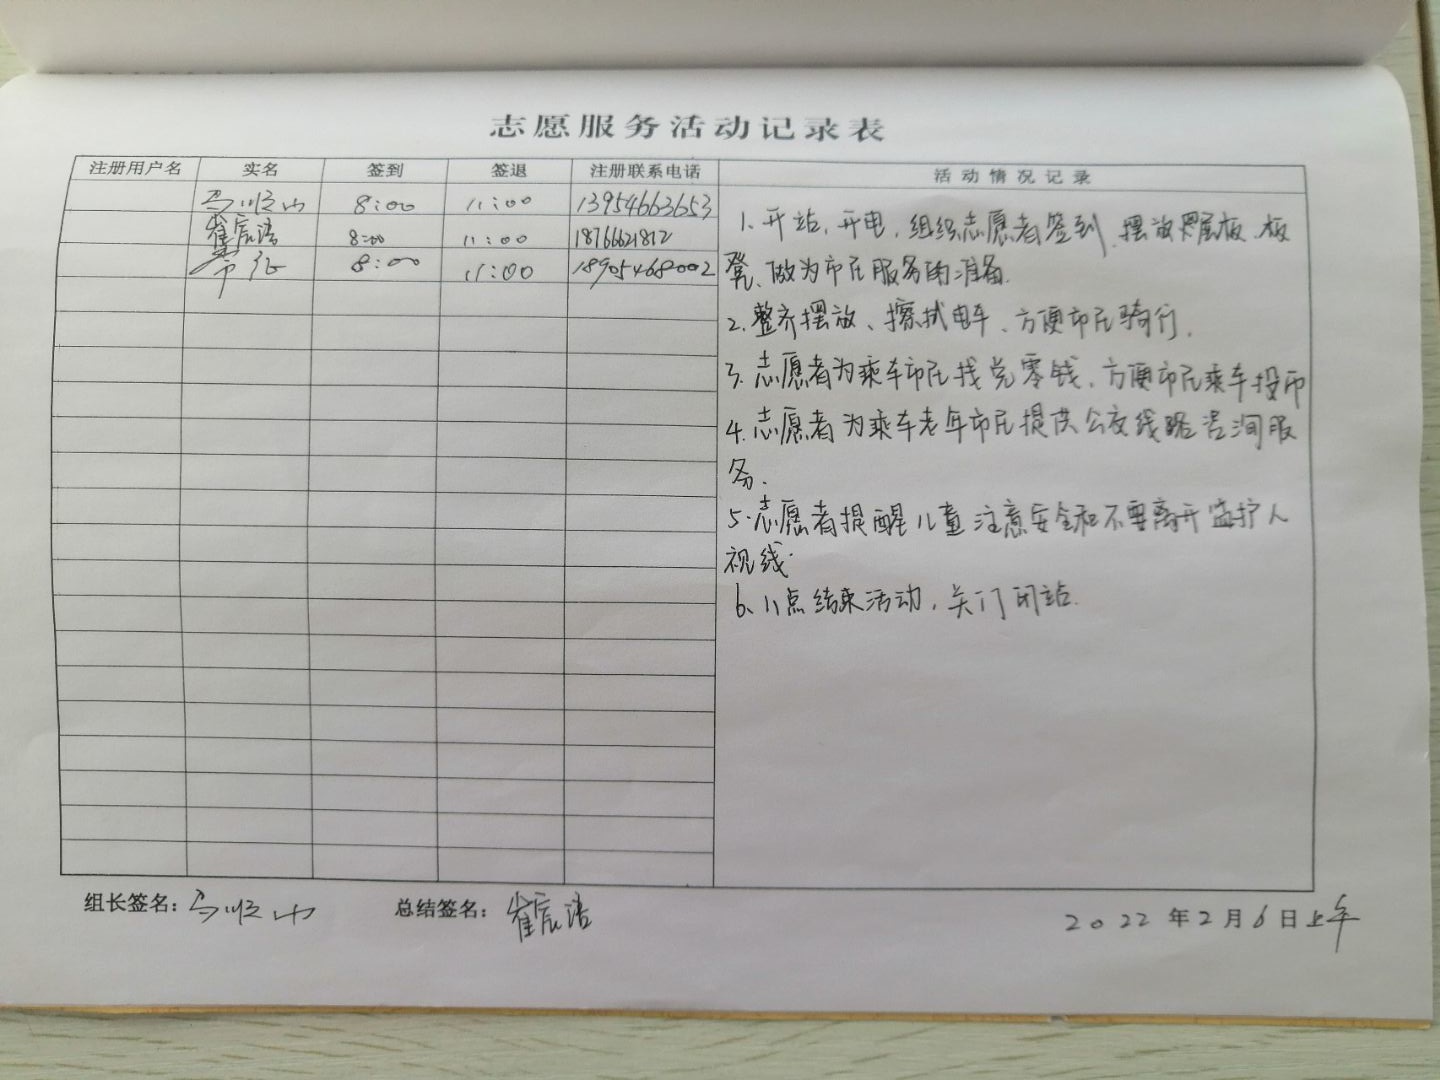 志愿服务活动记录表
注册用户名 实名 签到 签退 注册联系电话 活动情况记录
马顺山 8:00 11:00 13954663653
崔宸浩 8:00 11:00 18766621812
8:00 11:00 18905468002
1. 开站,开电,组织志愿者签到,摆放展板、板
凳、做为市民服务的准备.
2. 整齐摆放、擦拭电车、方便市民骑行.
3. 志愿者为乘车市民找兑零钱,方便市民乘车投币
4. 志愿者为乘车老年市民提供公交线路咨询服
务.
5. 志愿者提醒儿童注意安全和不要离开监护人
视线.
6、11点结束活动,关门闭站.
组长签名:马顺山 总结签名:崔宸浩 2022年2月6日上午